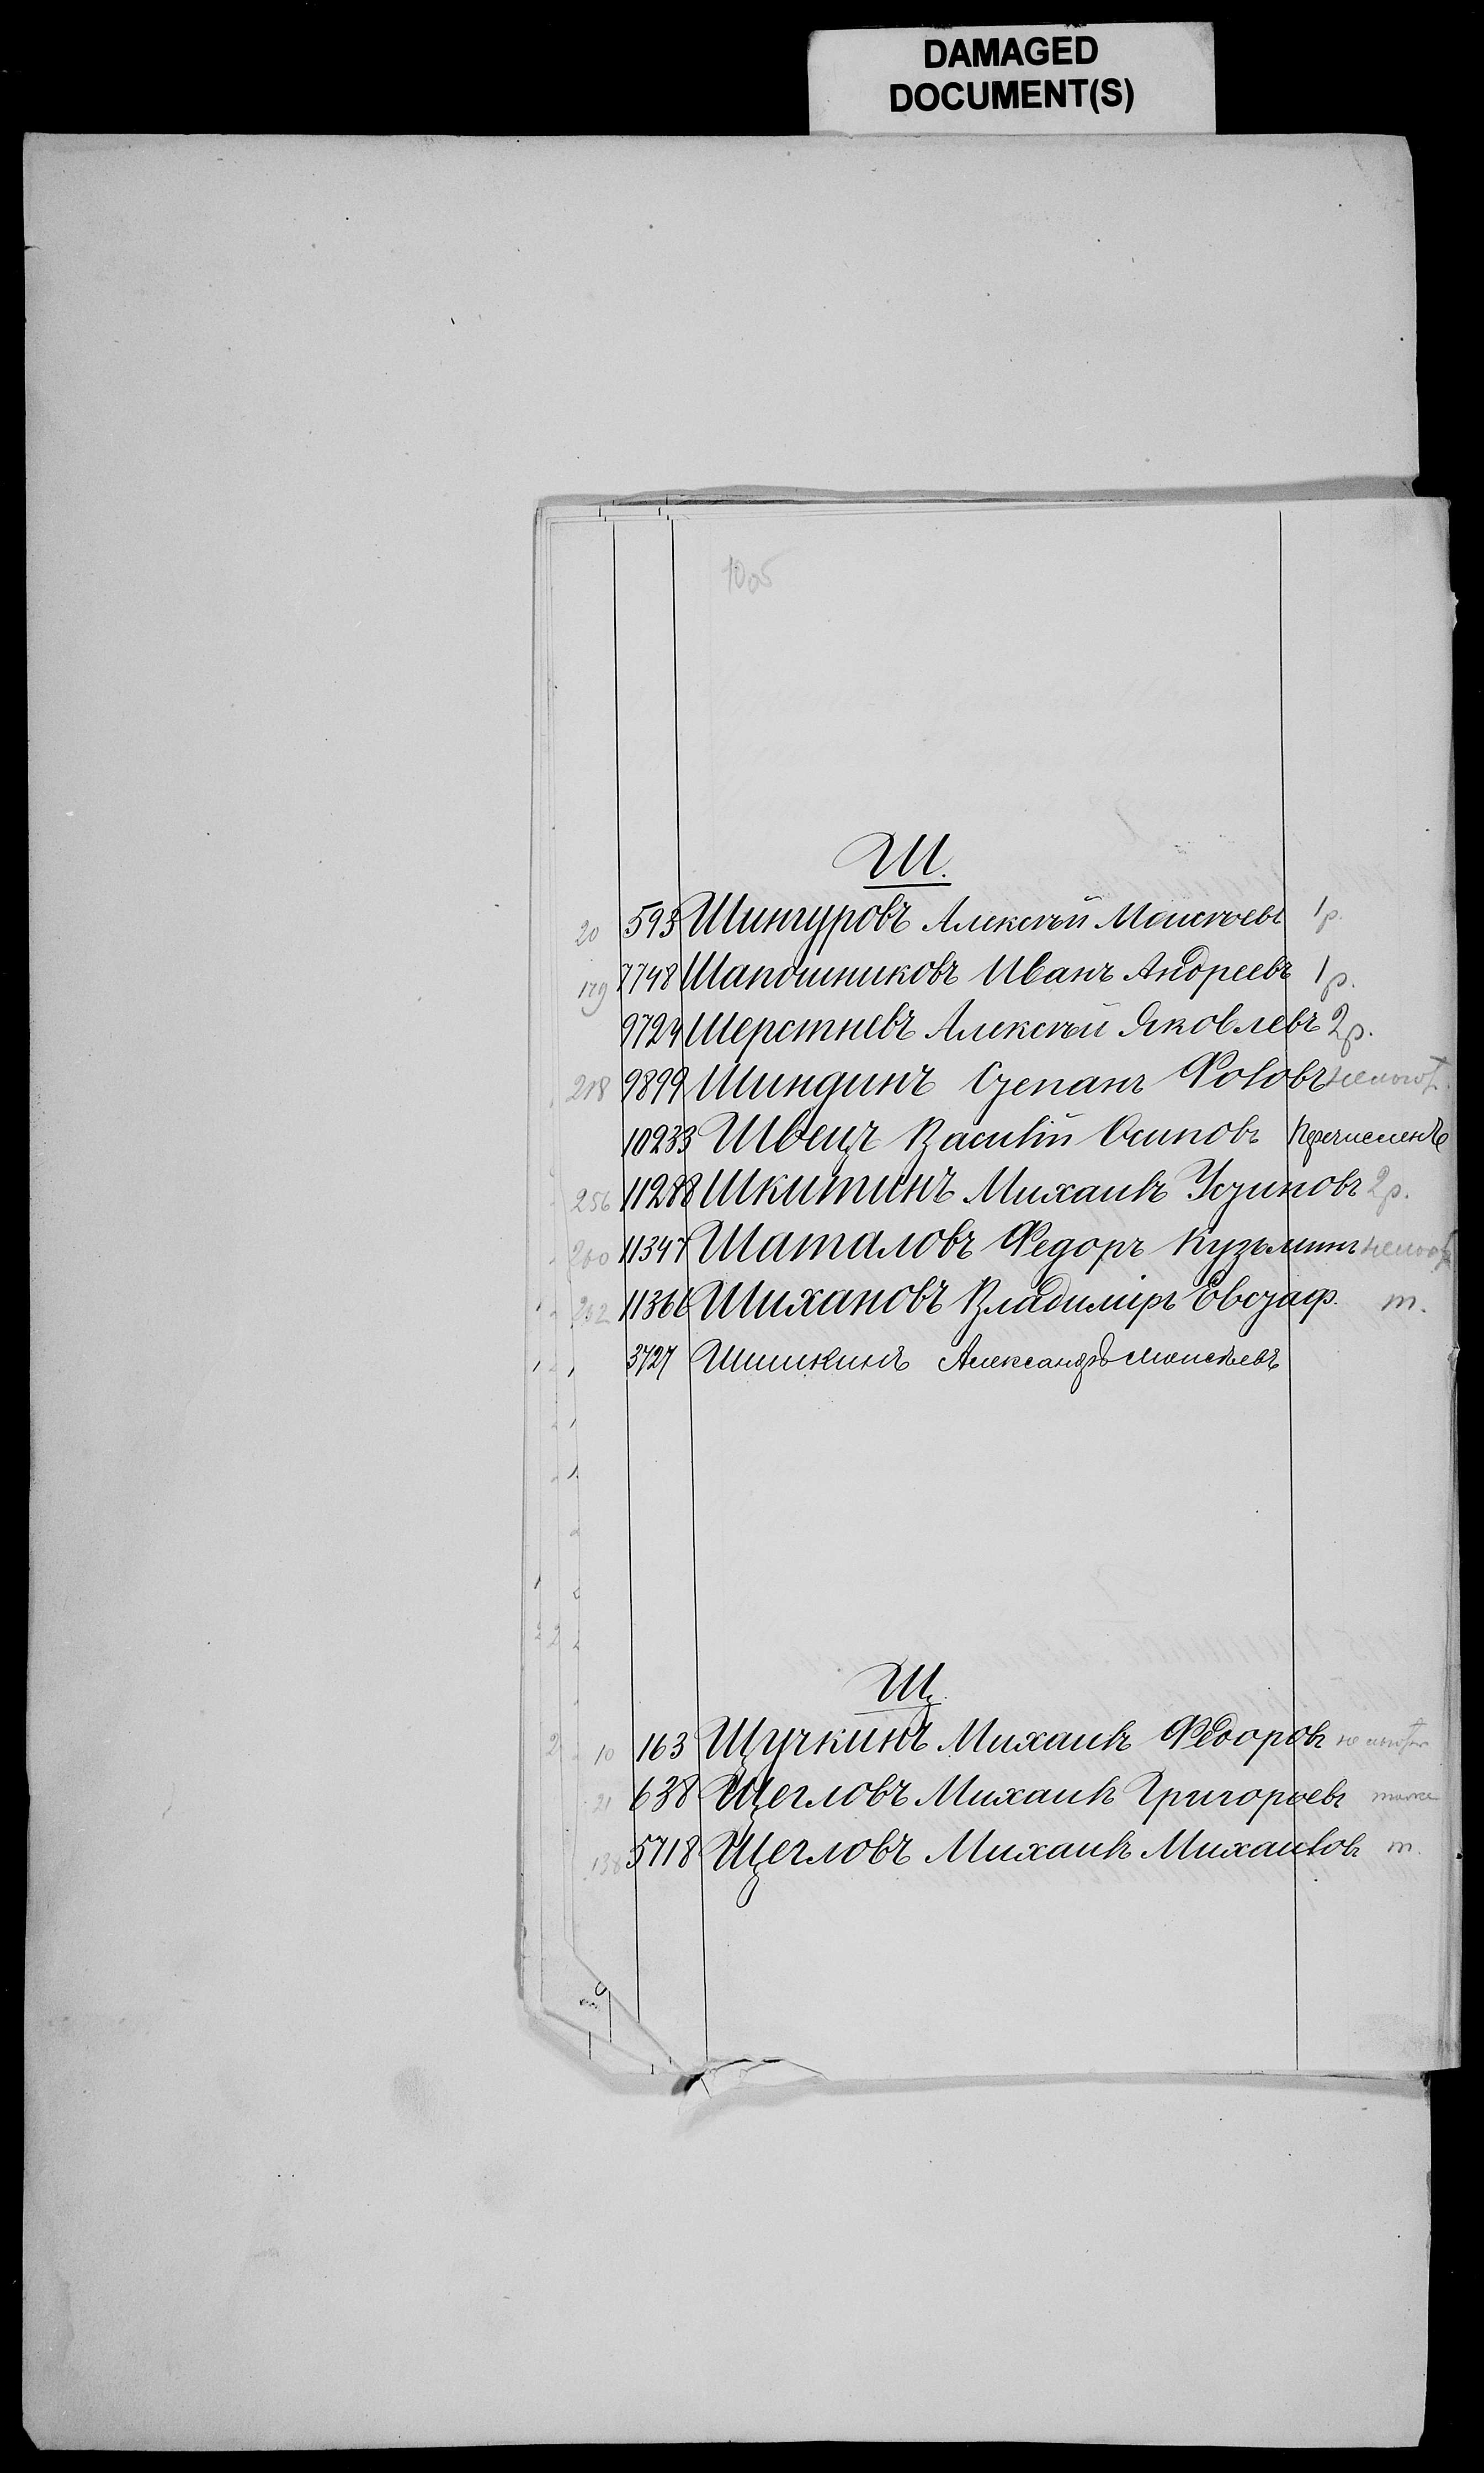 DAMAGED
DOCUMENT(S)
1005
Ш.
20 593 Шингуровъ Алексѣй Моисѣевъ 1 р.
179 7748 Шапошниковъ Иванъ Андреевъ 1 р.
9724 Шерстневъ Алексѣй Яковлевъ 2 р.
218 9899 Шиндинъ Степанъ
10233 Швецъ Василій Осиповъ Перечисленъ
256 11288 Шкитинъ Михаилъ Устиновъ 2 р.
260 11347 Шаталовъ Федоръ Кузьминъ
262 11366 Шихановъ Владиміръ Евстаф. т.
3727 Шишкинъ Александръ Моисѣевъ
Щ.
10 163 Щучкинъ Михаилъ Федоровъ
21 638 Щегловъ Михаилъ Григорьевъ тоже
138 5718 Щегловъ Михаилъ Михайловъ т.